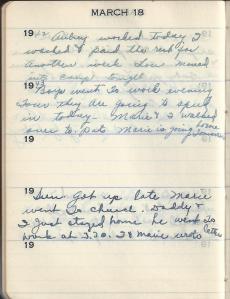 MARCH 18
1942 Aubry worked today I
washed & paid the rent for
another week Lou moved
into camp tonight
1943 Boys went to work evening
Tour they are going to spud
in today. Marie & I walked
over to Pats Marie is going home
tomorrow
19
Sun. Got up late Marie
went to church. Daddy &
I just stayed home he went to
work at 3.30. I & Marie wrote
letters
19